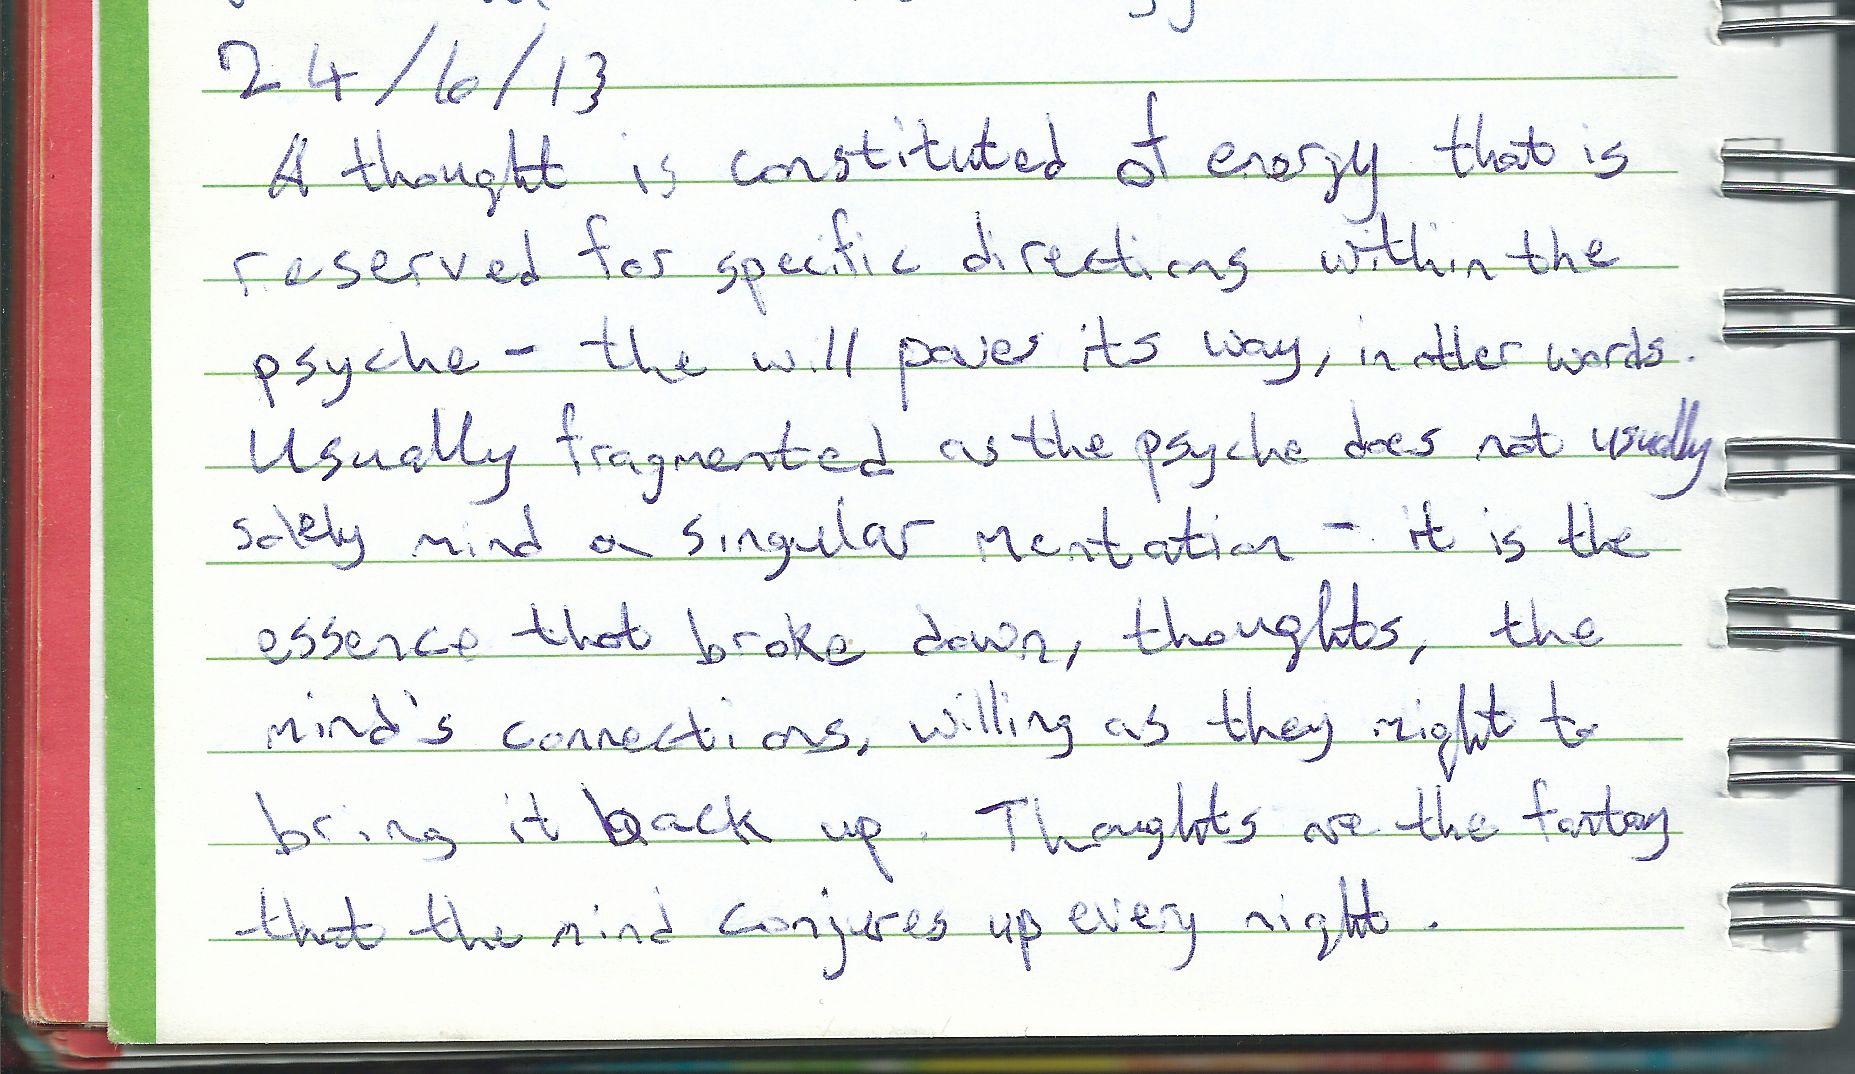 24/6/13
A thought is constituted of energy that is
reserved for specific directions within the
psyche - the will paves its way, in other words.
Usually fragmented as the psyche does not usually
solely mind a singular mentation - it is the
essence that broke down, thoughts, the
mind's connections, willing as they might to
bring it back up. Thoughts are the fantasy
that the mind conjures up every night.